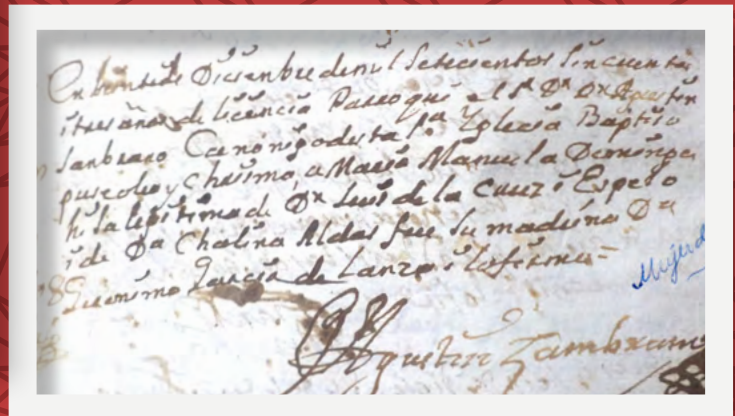 En beinte de Disienbre de mil Setesientos Sincuenta
i tres años de licencia Parroqui el Sr Dr Dn Agustin
Sanbrano Canonigo desta Sta Yglecia Baptiso
puso oleo y Chrismo, a Maria Manuela Dominga
hija legitima de Dn Luis de la Cruz i Espejo
i de Da Chatalina Aldas fue Su madrina Da
Geronima Garcia de Lanzo i lo firmé =
Agustin Zambrano
Mujer